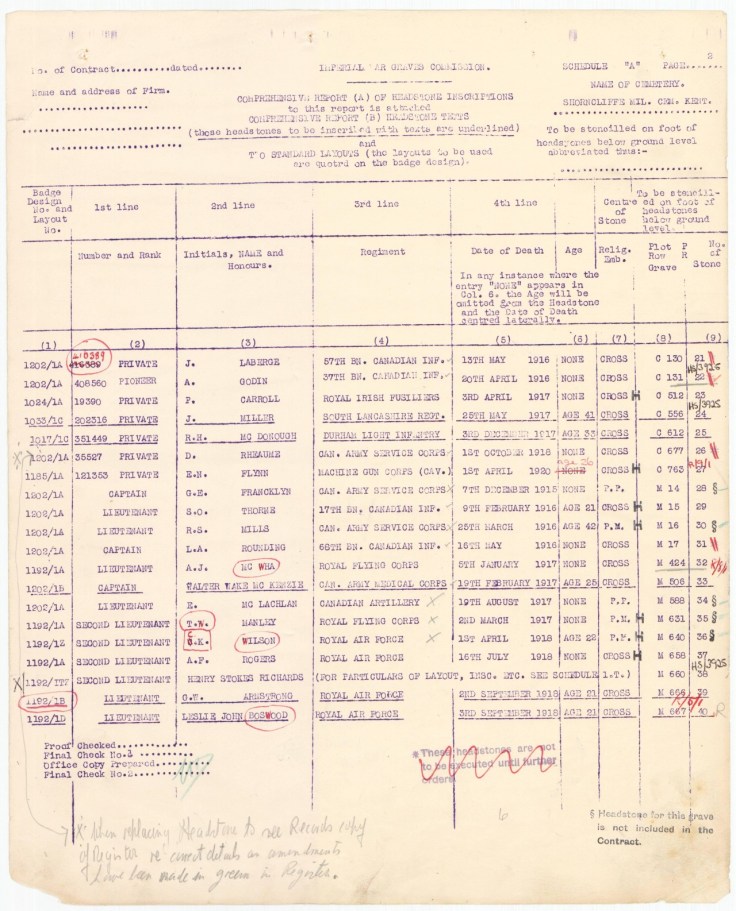 2
No. of Contract..........dated........ IMPERIAL WAR GRAVES COMMISSION. SCHEDULE "A" PAGE.......
Name and address of Firm. NAME OF CEMETERY.
COMPREHENSIVE REPORT (A) OF HEADSTONE INSCRIPTIONS SHORNCLIFFE MIL. CEM. KENT.
to this report is attached
COMPREHENSIVE REPORT (B) HEADSTONE TEXTS
(those headstones to be inscribed with texts are underlined) To be stencilled on foot of
and headstones below ground level
TWO STANDARD LAYOUTS (the layouts to be used abbreviated thus:-
are quoted on the badge design).
Badge Design No. and Layout No. 1st line 2nd line 3rd line 4th line Centre of Stone To be stencill-ed on foot of headstones below ground level.
Number and Rank Initials, NAME and Honours. Regiment Date of Death Age Relig. Emb. Plot Row Grave P R No. of Stone
In any instance where the
entry "NONE" appears in
Col. 6. the Age will be
omitted from the Headstone
and the Date of Death
centred laterally.
(1) (2) (3) (4) (5) (6) (7) (8) (9)
410389
1202/1A 416389 PRIVATE J. LABERGE 57TH BN. CANADIAN INF. 13TH MAY 1916 NONE CROSS C 130 21
HS/3925
1202/1A 408560 PIONEER A. GODIN 37TH BN. CANADIAN INF. 20TH APRIL 1916 NONE CROSS C 131 22
1024/1A 19390 PRIVATE P. CARROLL ROYAL IRISH FUSILIERS 3RD APRIL 1917 NONE CROSS H C 512 23
HS/3925
1033/1C 202316 PRIVATE J. MILLER SOUTH LANCASHIRE REGT. 25TH MAY 1917 AGE 41 CROSS C 556 24
1017/1C 351449 PRIVATE R.H. MC DONOUGH DURHAM LIGHT INFANTRY 3RD DECEMBER 1917 AGE 33 CROSS C 612 25
X 1202/1A 35527 PRIVATE D. RHEAUME CAN. ARMY SERVICE CORPS 1ST OCTOBER 1918 NONE CROSS C 677 26
age 36
1185/1A 121353 PRIVATE E.N. FLYNN MACHINE GUN CORPS (CAV.) 1ST APRIL 1920 NONE CROSS H C 763 27
1202/1A CAPTAIN G.E. FRANCKLYN CAN. ARMY SERVICE CORPS 7TH DECEMBER 1915 NONE P.P. M 14 28 §
1202/1A LIEUTENANT S.O. THORNE 17TH BN. CANADIAN INF. 9TH FEBRUARY 1916 AGE 21 CROSS H M 15 29
1202/1A LIEUTENANT R.S. MILLS CAN. ARMY SERVICE CORPS 25TH MARCH 1916 AGE 42 P.M. H M 16 30 §
1202/1A CAPTAIN L.A. ROUNDING 66TH BN. CANADIAN INF. 15TH MAY 1916 NONE CROSS M 17 31
1192/1A LIEUTENANT A.J. MC WHA ROYAL FLYING CORPS 5TH JANUARY 1917 NONE CROSS M 424 32
1202/1B CAPTAIN WALTER WAKE MC KENZIE CAN. ARMY MEDICAL CORPS 19TH FEBRUARY 1917 AGE 25 CROSS M 506 33
1202/1A LIEUTENANT E. MC LACHLAN CANADIAN ARTILLERY X 19TH AUGUST 1917 NONE P.P. M 588 34 §
1192/1A SECOND LIEUTENANT T.W. MANLEY ROYAL FLYING CORPS X 2ND MARCH 1917 NONE P.M. H M 631 35 §
1192/1E SECOND LIEUTENANT G.K. WILSON ROYAL AIR FORCE X 1ST APRIL 1918 AGE 22 P.M. H M 640 36 §
1192/1A SECOND LIEUTENANT A.F. ROGERS ROYAL AIR FORCE 16TH JULY 1918 NONE CROSS H M 658 37
HS/3925
X 1192/ITF SECOND LIEUTENANT HENRY STOKES RICHARDS (FOR PARTICULARS OF LAYOUT, INSC. ETC. SEE SCHEDULE I.T.) M 660 38
1192/1B LIEUTENANT G.W. ARMSTRONG ROYAL AIR FORCE 2ND SEPTEMBER 1918 AGE 21 CROSS M 666 39
1192/1D LIEUTENANT LESLIE JOHN BOSWOOD ROYAL AIR FORCE 3RD SEPTEMBER 1918 AGE 21 CROSS M 667 40
Proof Checked............
Final Check No.1 ..........
Office Copy Prepared.......
Final Check No.2..........
* These headstones are not
to be executed until further
orders
6
§ Headstone for this grave
is not included in the
Contract.
X When replacing Headstone to see Records copy
of Register re' correct details as amendments
have been made in green in Register.